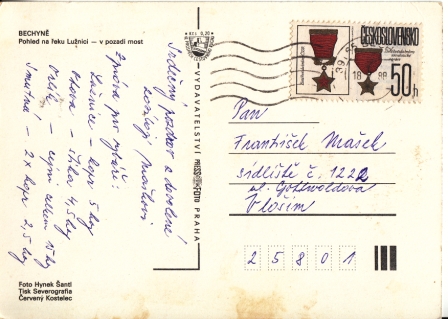 BECHYNĚ
Pohled na řeku Lužnici — v pozadí most
Srdečný pozdrav z dovolené
Zpráva pro rybáře:
Lužnice - kapr 5 kg
Otava - štika 4,5 kg
Orlík - celkem 15 kg
Smutná - 2x kapr 2,5 kg
Foto Hynek Šantl
Tisk Severografia
Červený Kostelec
VYDAVATELSTVÍ PRESSFOTO PRAHA
ČESKOSLOVENSKO
50h
Pan
František Mašek
sídliště č. 1222
ul. Gottwaldova
Vlašim
25801